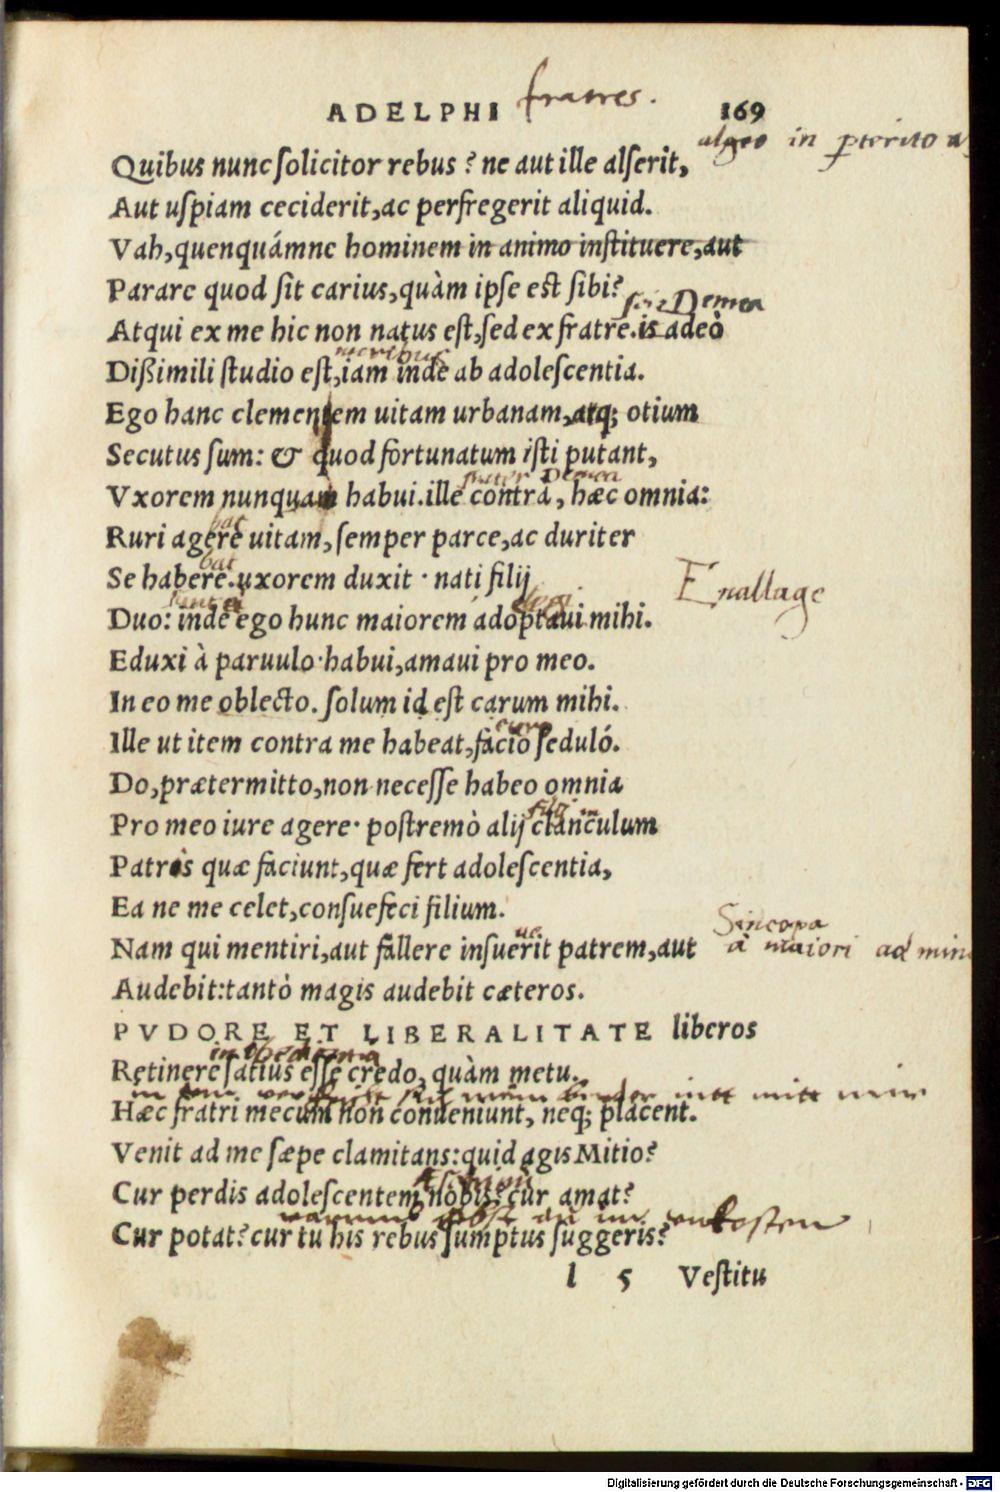 ADELPHI fratres. 169
algeo in pterito
Quibus nunc ſolicitor rebus ? ne aut ille alſerit,
Aut uſpiam ceciderit,ac perfregerit aliquid.
Vah,quenquámne hominem in animo inſtituere,aut
Parare quod ſit carius,quàm ipſe eſt ſibi?
Demea
Atqui ex me hic non natus eſt,ſed ex fratre.is adeò
moribus
Dißimili ſtudio eſt,iam inde ab adoleſcentia.
Ego hanc clementem uitam urbanam,atq; otium
Secutus ſum: & quod fortunatum iſti putant,
frater Demea
Vxorem nunquam habui.ille contrà, hæc omnia:
bat
Ruri agere uitam, ſemper parce,ac duriter
bat
Se habere.uxorem duxit · nati filij
Enallage
Duo: inde ego hunc maiorem adoptaui mihi.
Eduxi à paruulo·habui,amaui pro meo.
In eo me oblecto. ſolum id eſt carum mihi.
curo
Ille ut item contra me habeat,facio ſeduló.
Do,prætermitto,non neceſſe habeo omnia
filij
Pro meo iure agere· poſtremò alij clanculum
Patres quæ faciunt,quæ fert adoleſcentia,
Ea ne me celet,conſuefeci filium.
Sincopa
ue
Nam qui mentiri,aut fallere inſuerit patrem,aut à maiori ad
Audebit:tantò magis audebit cæteros.
PVDORE ET LIBERALITATE liberos
in obedientia
Retinere ſatius eſſe credo, quàm metu.
Hæc fratri mecum non conueniunt, neq; placent.
Venit ad me ſæpe clamitans:quid agis Mitio?
Cur perdis adoleſcentem nobis? cur amat?
unkosten
Cur potat? cur tu his rebus ſumptus ſuggeris?
l 5 Veſtitu
Digitalisierung gefördert durch die Deutsche Forschungsgemeinschaft - DFG